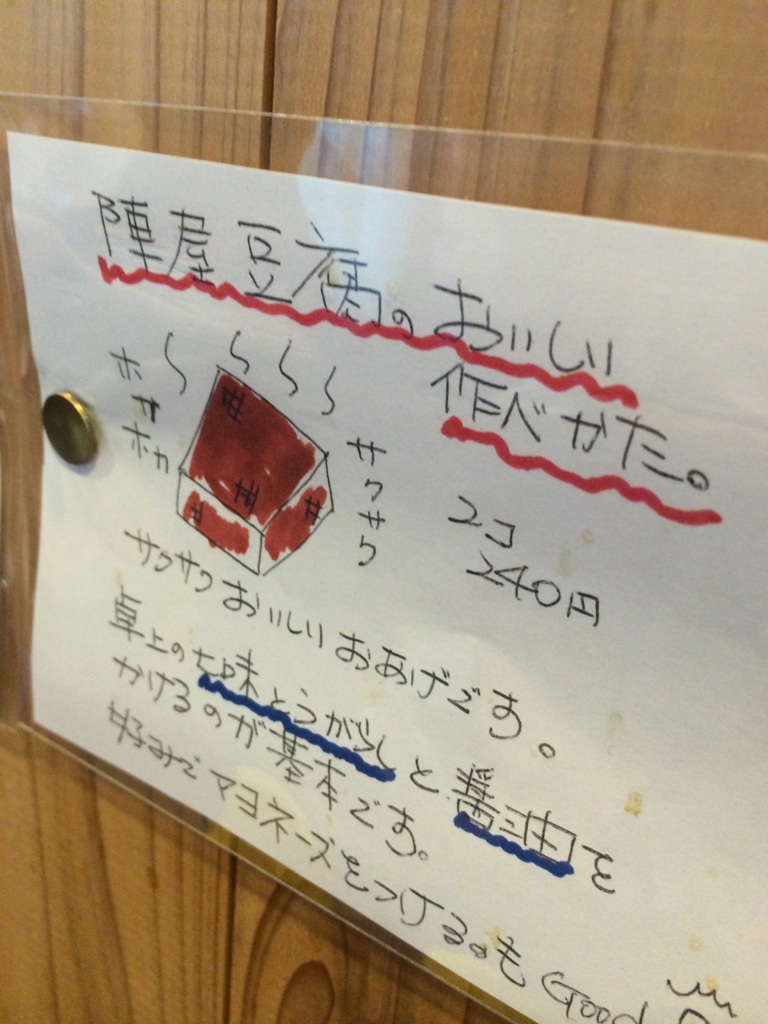 陣屋豆腐のおいしい
作べかた。
ホカホカ
サクサク
2コ
240円
サクサクおいしいおあげです。
卓上の七味とうがらしと醤油を
かけるのが基本です。
好みでマヨネーズをつけるのも Good